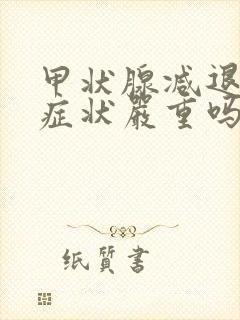 甲状腺减退
症状严重吗
纸质书